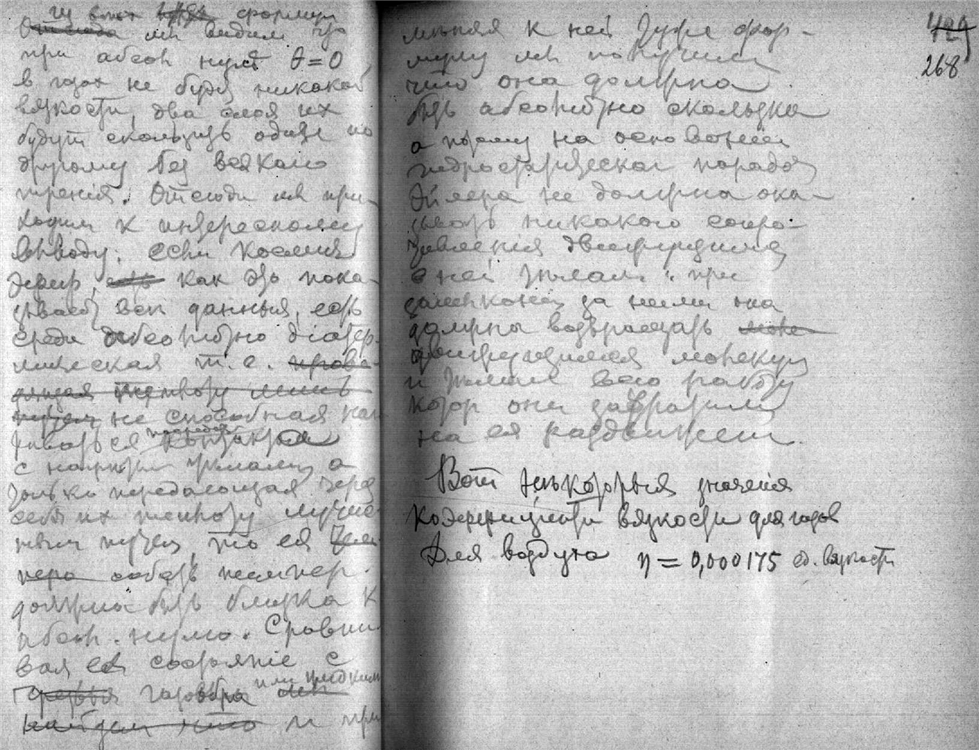 формулы
мы видим что
при абсол нуле θ=0
в газах не будет никакой
вязкости, два слоя их
будут скользить один по
другому без всякаго
тренія. Отсюда мы при-
ходим к интересному
выводу: если
эфир, как это пока-
зывают все данныя, есть
среда абсолютно діатер-
мическая т. е.
не способная на
греваться
с нагрѣтыми тѣлами, а
только передающая через
себя их теплоту лучис
тым путем, то ея
темпер.
должна быть близка к
абсол. нулю. Сравни
вая ея состояніе с
газообр или жидким
и при
меняя к ней эту фор-
мулу мы получим
что она должна
быть абсолютно скользка
а потому на основании
гидростатическаго парадок
Эйлера не должна ока-
зывать никакого сопро-
тивления движущимся
в ней телам и при
за ними она
должна возвращать
движущимся молекул
и телам всю работу
котор они затратили
на ея раздвижение.
Вот некоторыя значения
коэффициента вязкости для газов
Для воздуха η = 0,000175 ед. вязкости
429
268